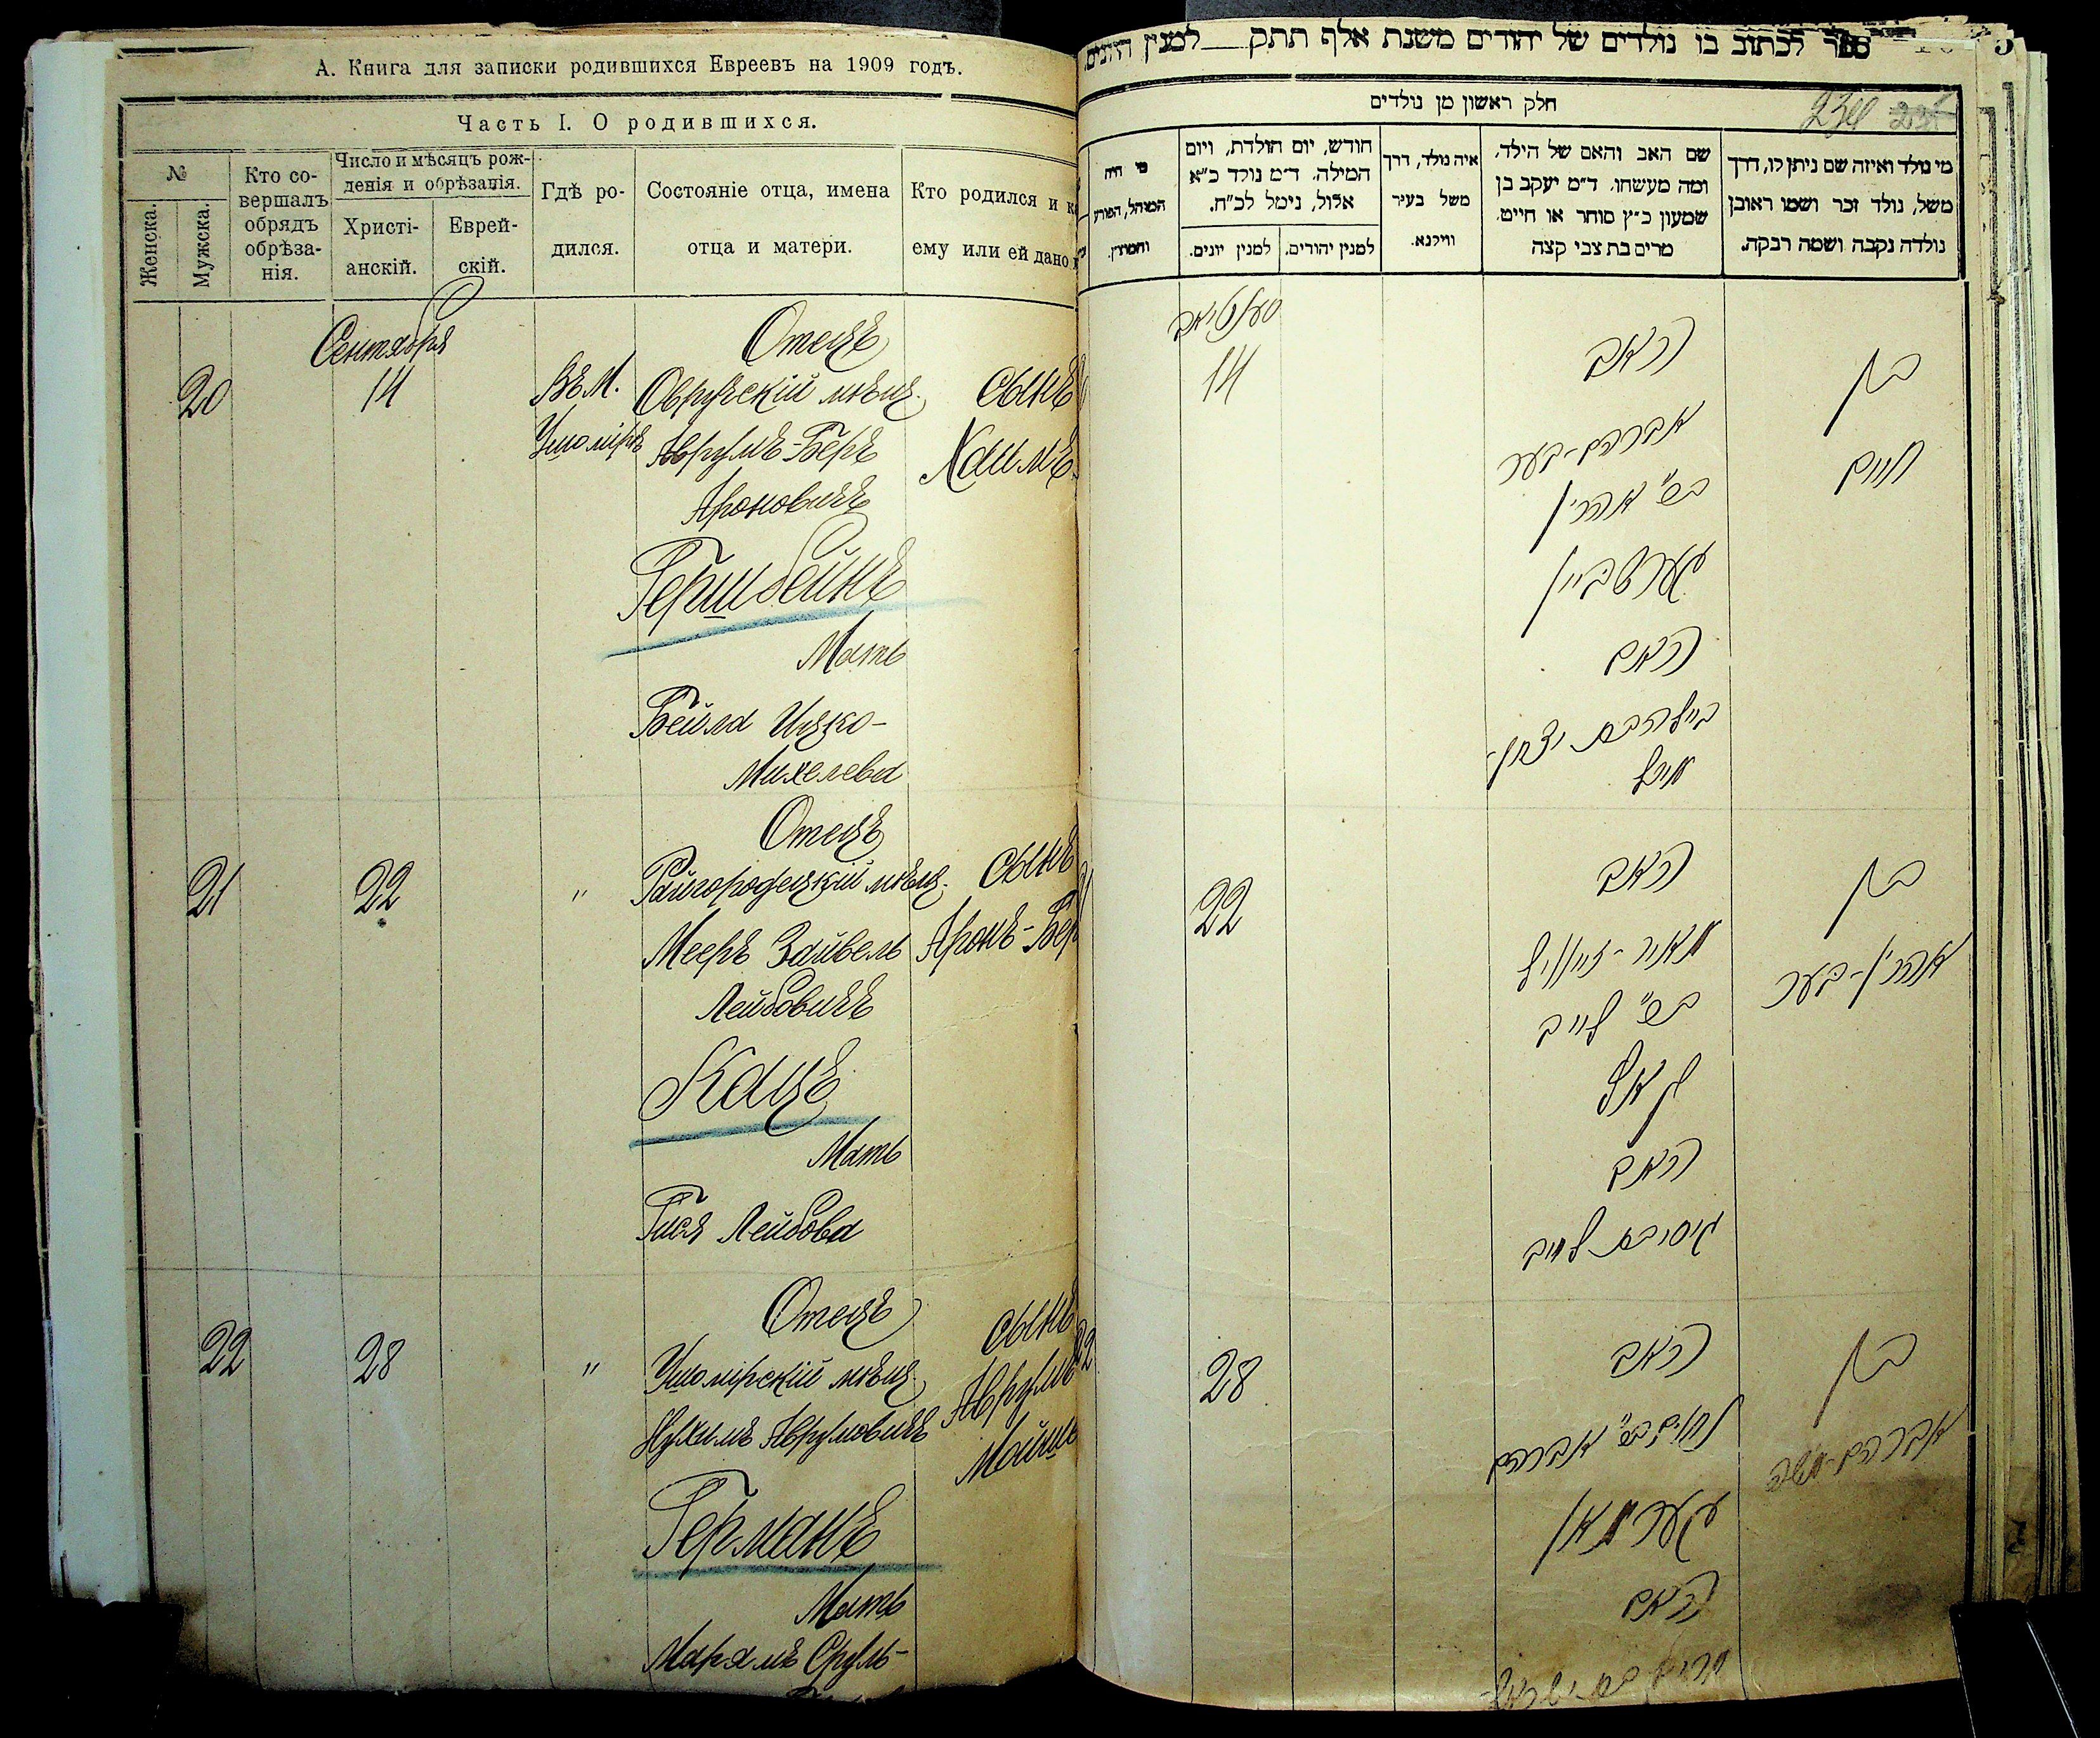 А. Книга для записки родившихся Евреевъ на 1909 годъ.
Часть I. О родившихся.
№
Женска.
Мужска.
Кто со-
вершалъ
обрядъ
обрѣза-
нія.
Число и мѣсяцъ рож-
денія и обрѣзанія.
Христі-
анскій.
Еврей-
скій.
Гдѣ ро-
дился.
Состояніе отца, имена
отца и матери.
Кто родился и
ему или ей дано
Сентября
20
14
Въ М.
Ушомірѣ
Отецъ
Овручскій мѣщ.
Аврумъ-Беръ
Ароновичъ
Гершбейнъ
Мать
Бейла Ицко-
Михелева
сынъ
Хаимъ
21
22
"
Отецъ
Райгородецкій мѣщ.
Мееръ Зайвель
Лейбовичъ
Кацъ
Мать
Гися Лейбова
сынъ
Аронъ-Бер
22
28
"
Отецъ
Ушомірскій мѣщ.
Нухимъ Аврумовичъ
Германъ
Мать
Марямъ Сруль-
сынъ
Аврумъ
Мойш
ספר לכתוב בו נולדים של יהודים משנת אלף תתק למנין
חלק ראשון מן נולדים
234
מי נולד ואיזה שם ניתן לו, דרך
משל, נולד זכר ושמו ראובן
נולדה נקבה ושמה רבקה.
שם האב והאם של הילד,
ומה מעשהו, ד״מ יעקב בן
שמעון כ״ץ סוחר או חייט.
מרים בת צבי קצה
איה נולד, דרך
משל בעיר
ווילנא.
חודש, יום הולדת, ויום
המילה, ד״מ נולד כ״א
אלול, נימל לכ״ח.
למנין יהודים.
למנין יונים.
מי היה
המוהל, הפורע
והמוצץ.
סענטיאב
14
האב
אברהם-בער
בש״ אהרן
גערשביין
האם
ביילה בת יצחק-
מיכל
בן
חיים
22
האב
מאיר-זייוויל
בש״ לייב
קאץ
האם
גיסי בת לייב
בן
אהרן-בער
22
28
האב
נחום בש״ אברהם
גערמאן
האם
מרים בת ישראל-
בן
אברהם-משה